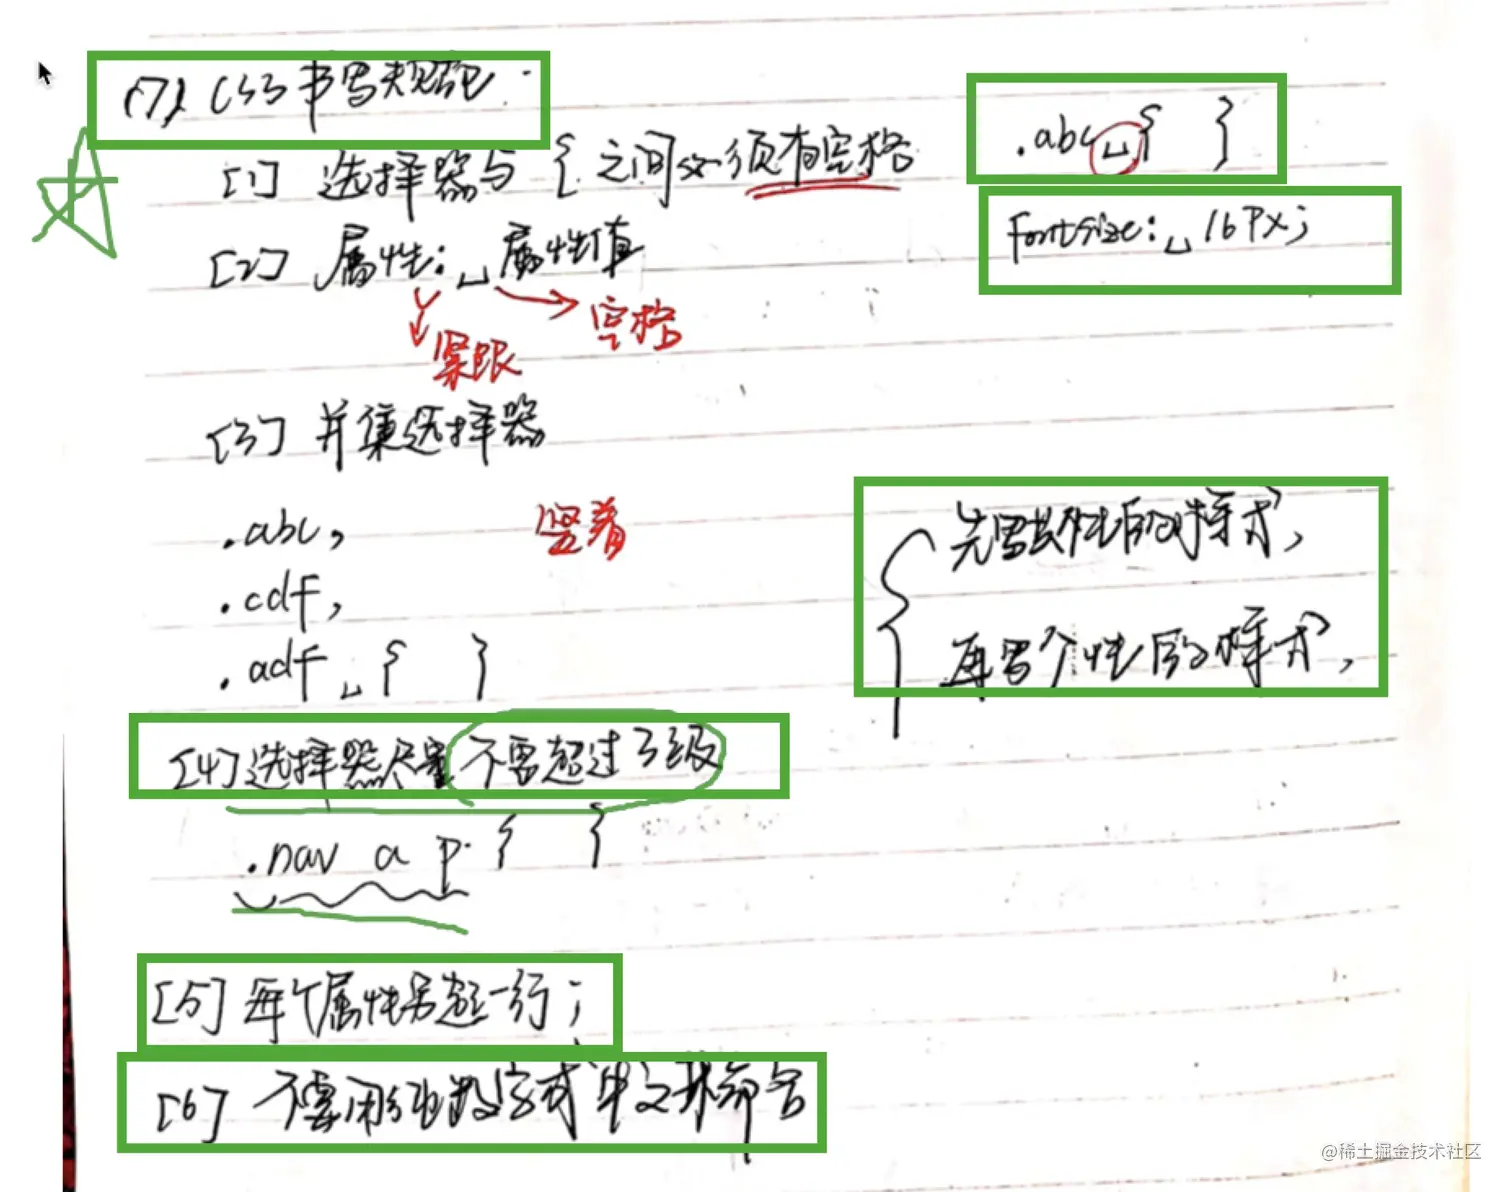 (7) CSS书写规范.
[1] 选择器与 { 之间必须有空格
.abc␣{ }
[2] 属性:␣属性值
fontsize:␣16PX;
空格
紧跟
[3] 并集选择器
.abc,
竖着
.cdf,
.adf␣{ }
先写共性的样式,
再写个性的样式,
[4] 选择器尽量不要超过3级
.nav a p { }
[5] 每个属性另起一行;
[6] 不要用纯数字或中文来命名
@稀土掘金技术社区